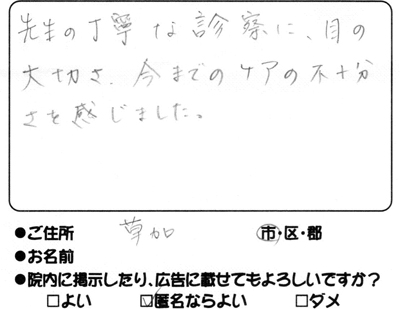 先生の丁寧な診察に、目の
大切さ、今までのケアの不十分
さを感じました。
●ご住所 草加 市・区・郡
●お名前
●院内に掲示したり、広告に載せてもよろしいですか?
□よい ☑匿名ならよい □ダメ